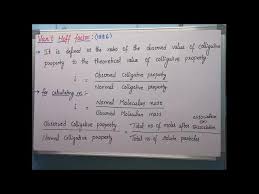 Van't Hoff factor : (1886)
→ It is defined as the ratio of the observed value of colligative
property to the theoretical value of colligative property.
i = Observed Colligative property
Normal Colligative property
→ for calculating i :-
i = Normal Molecular mass
Observed Molecular mass
Observed Colligative property = Total no of moles after association/dissociation
Normal Colligative property Total no of solute particles